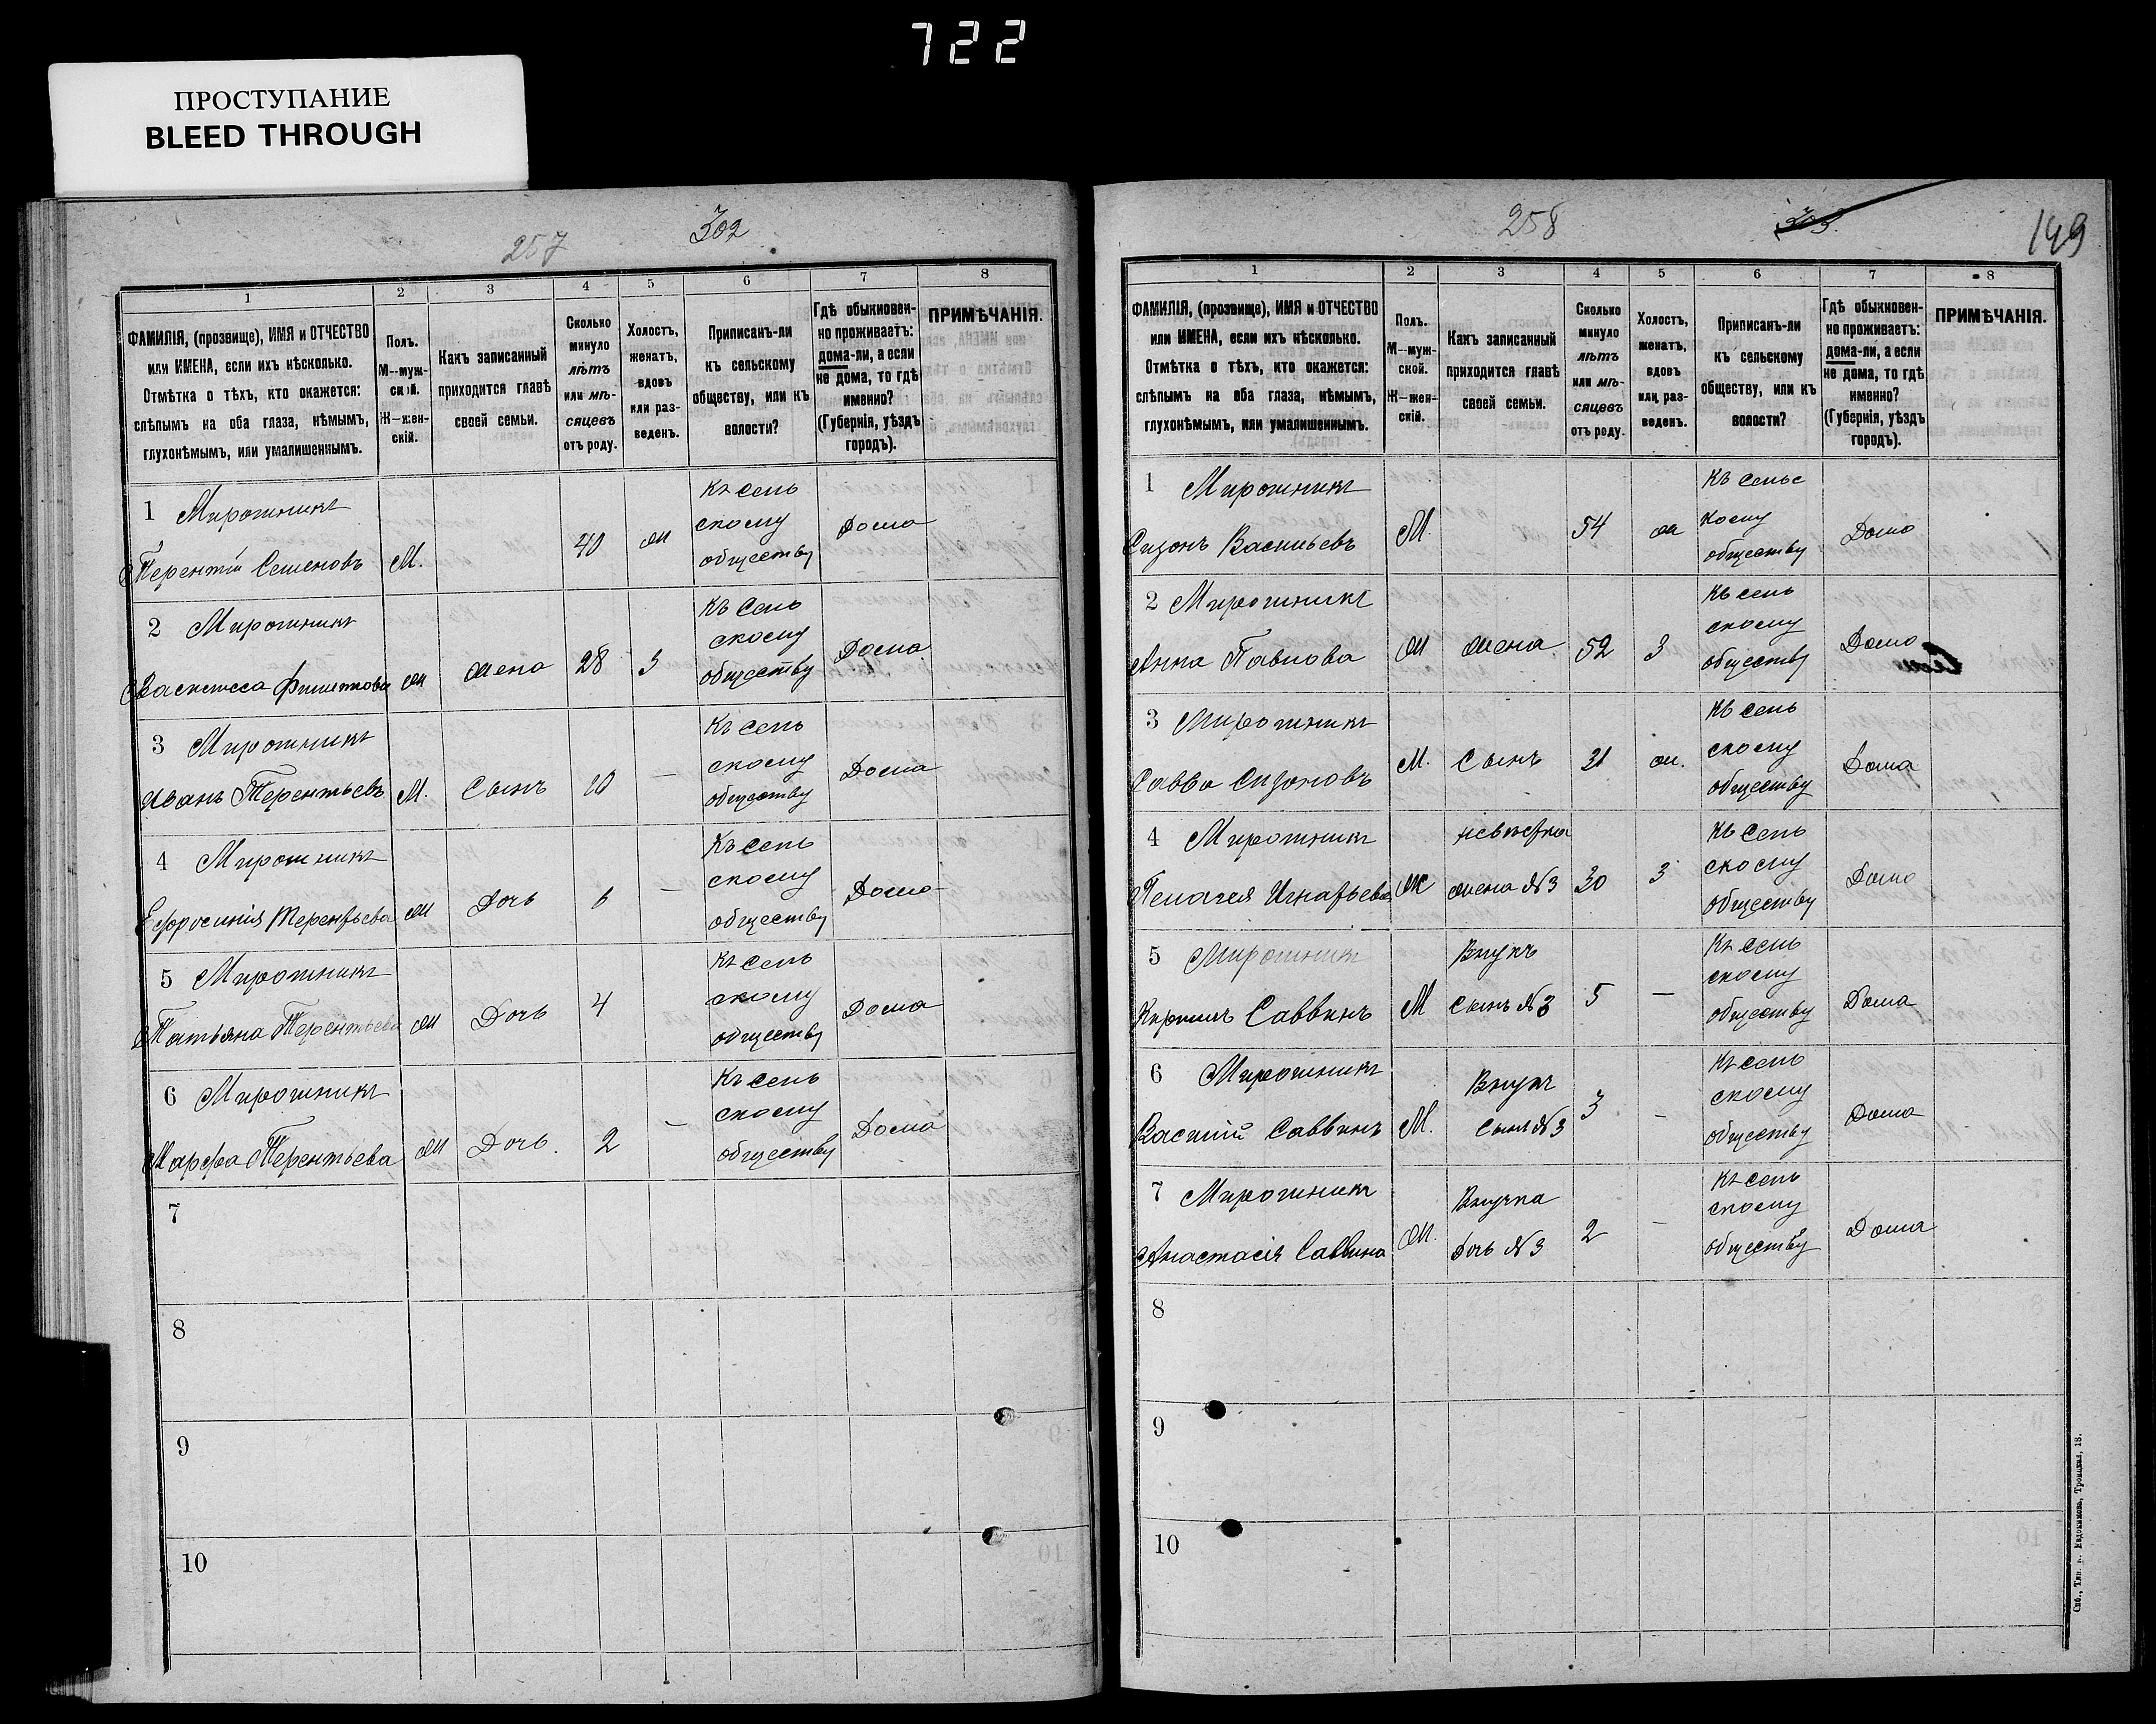 722
ПРОСТУПАНИЕ
BLEED THROUGH
257
302
1 2 3 4 5 6 7 8
ФАМИЛІЯ, (прозвище), ИМЯ и ОТЧЕСТВО или ИМЕНА, если ихъ нѣсколько. Отмѣтка о тѣхъ, кто окажется: слѣпымъ на оба глаза, нѣмымъ, глухонѣмымъ, или умалишеннымъ.
Полъ. М—мужской. Ж—женскій.
Какъ записанный приходится главѣ своей семьи.
Сколько минуло лѣтъ или мѣсяцевъ отъ роду.
Холостъ, женатъ, вдовъ или разведенъ.
Приписанъ-ли къ сельскому обществу, или къ волости?
Гдѣ обыкновенно проживаетъ: дома-ли, а если не дома, то гдѣ именно? (Губернія, уѣздъ городъ).
ПРИМѢЧАНІЯ.
1 Мирошникъ
Терентій Семеновъ М. 40 ж Къ сельскому обществу Дома
2 Мирошникъ
Филиппова ж жена 28 З Къ сельскому обществу Дома
3 Мирошникъ
Иванъ Терентьевъ М. Сынъ 10 — Къ сельскому обществу Дома
4 Мирошникъ
Ефросинія Терентьева ж Дочь 6 — Къ сельскому обществу Дома
5 Мирошникъ
Татьяна Терентьева ж Дочь 4 Къ сельскому обществу Дома
6 Мирошникъ
Марфа Терентьева ж Дочь. 2 — Къ сельскому обществу Дома
7
8
9
10
258
303.
149
1 2 3 4 5 6 7 8
ФАМИЛІЯ, (прозвище), ИМЯ и ОТЧЕСТВО или ИМЕНА, если ихъ нѣсколько. Отмѣтка о тѣхъ, кто окажется: слѣпымъ на оба глаза, нѣмымъ, глухонѣмымъ, или умалишеннымъ.
Полъ. М—мужской. Ж—женскій.
Какъ записанный приходится главѣ своей семьи.
Сколько минуло лѣтъ или мѣсяцевъ отъ роду.
Холостъ, женатъ, вдовъ или разведенъ.
Приписанъ-ли къ сельскому обществу, или къ волости?
Гдѣ обыкновенно проживаетъ: дома-ли, а если не дома, то гдѣ именно? (Губернія, уѣздъ городъ).
ПРИМѢЧАНІЯ.
1 Мирошникъ
Сизонъ Васильевъ М. 54 ж Къ сельскому обществу Дома
2 Мирошникъ
Анна Павлова ж жена 52 З Къ сельскому обществу Дома
3 Мирошникъ
Савва Сизоновъ М. Сынъ 31 ж. Къ сельскому обществу Дома
4 Мирошникъ невѣстка
Пелагея Игнатьева ж жена №3 30 З Къ сельскому обществу Дома
5 Мирошникъ Внукъ
Кириллъ Саввинъ М Сынъ №3 5 — Къ сельскому обществу Дома
6 Мирошникъ Внукъ
Василій Саввинъ М. Сынъ №3 3 — Къ сельскому обществу Дома
7 Мирошникъ Внучка
Анастасія Саввина ж. Дочь №3 2 — Къ сельскому обществу Дома
8
9
10